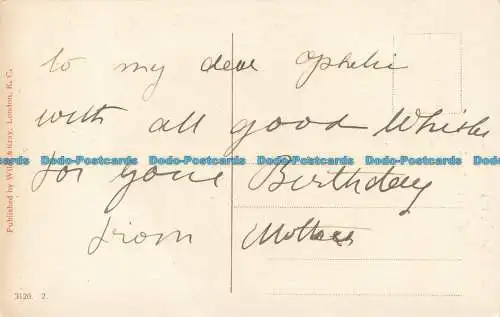 to my dear Ophelie
with all good Whishes
for your Birthday
from Mother
Dodo-Postcards Dodo-Postcards Dodo-Postcards Dodo-Postcards
Published by Wildt & Kray, London, E.C.
3120 2.